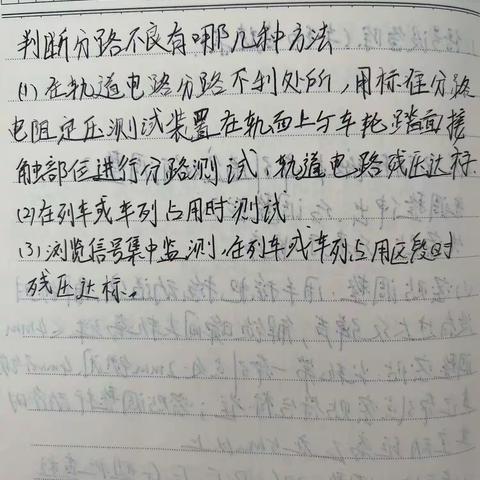 判断分路不良有哪几种方法
(1) 在轨道电路分路不利处所，用标准分路
电阻定压测试装置在轨面上与车轮踏面接
触部位进行分路测试，轨道电路残压达标.
(2) 在列车或车列占用时测试
(3) 浏览信号集中监测，在列车或车列占用区段时
残压达标。